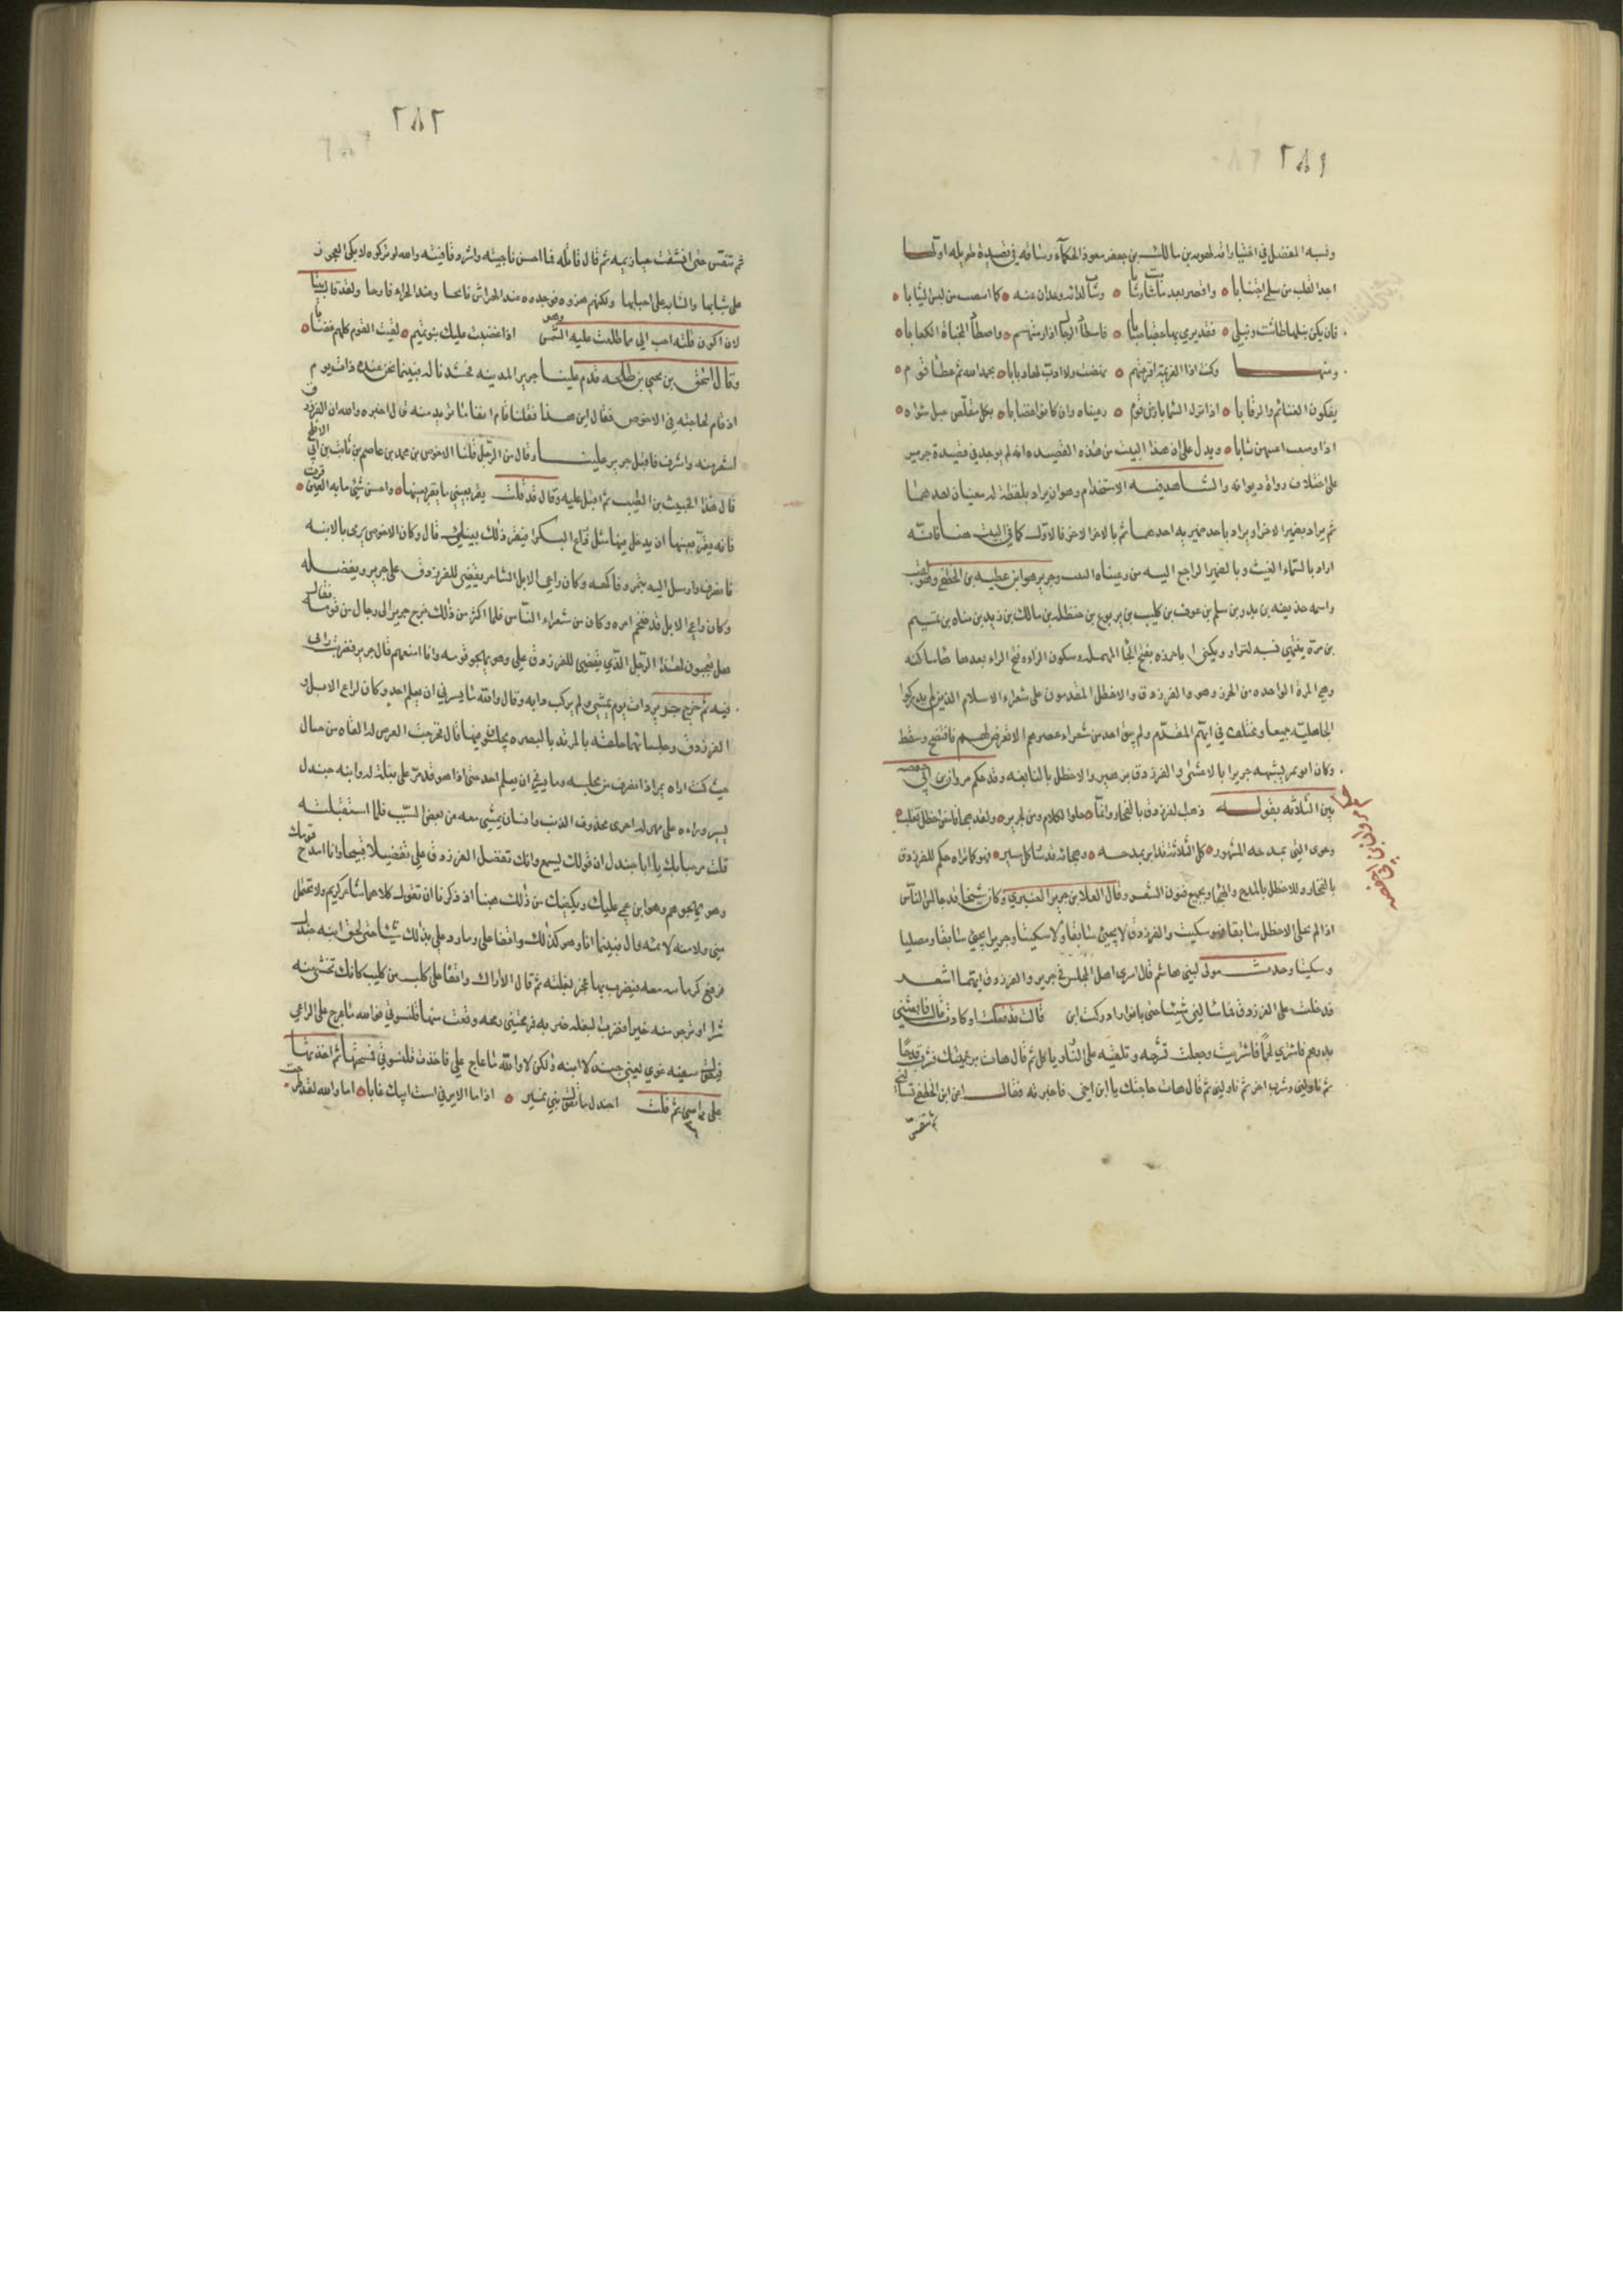 ٢٨١
ونسبه المفضل في اختياراته لمعوية بن مالك بن جعفر معود الحكماء وساقه في قصيدة طويلة اولها
اجد القلب من سلمى اجتنابا واقصر بعد ما شابت وشابا وشاب لداته وعدلن عنه كما من لبس الثيابا
فان يكن نبلها طاشت ونبلي فقد نرمي بها حقبا صيابا فاصطاد الرجال اذا رمتهم واصطاد المخباة الكعابا
ومنها وكنت اذا العظيمة نهضت ولا ادب لها دبابا بحمد الله ثم عطا قوم
يفكون الغنائم والرقابا اذا نزل السماء بارض قوم رعيناه وان كانوا غضابا بكل مقلص عبل شواه
اذا وضعت اعنتهن ثابا ويدل على ان هذا البيت من هذه القصيده انه لم يوجد في قصيدة جرير
على اختلاف رواة ديوانه والشاهد فيه الاستخدام وهو ان يراد بلفظ له معنيان احدهما
ثم يراد بضميره الاخر او يراد باحد ضميريه احدهما ثم بالاخر الاخر فالاول كما في البيت هنا فانه
اراد بالسماء الغيث وبالضمير الراجع اليه من رعيناه النبت وجرير هو ابن عطيه بن الخطفى وهو لقب
واسمه حذيفه بن بدر بن سلم بن عوف بن كليب بن يربوع بن حنظله بن مالك بن زيد بن مناه بن تميم
بن مرة ينتهي نسبه لنزار ويكنى ابا حرزه بفتح الحاء المهمله وسكون الراء وفتح الزاء بعدها هاء ساكنه
وهي المرة الواحده من الحرز وهو والفرزدق والاخطل المقدمون على شعراء الاسلام الذين لم يدركوا
الجاهلية جميعا ومختلف في ايهم المقدم ولم يبق احد من شعراء عصرهم الا تعرض لهم فافتضح وسقط
وكان ابو عمر يشبه جريرا بالاعشى والفرزدق بزهير والاخطل بالنابغه وقد حكم مروان بن ابي حفصه
بين الثلاثه بقوله ذهب الفرزدق بالفخار وانما حلو الكلام ومره لجرير ولقد هجا فامض اخطل تغلب
وحوى اللهى بمديحه المشهور كل الثلاثة قد ابر بمدحه وهجاؤه قد سار كل مسير فهو كما تراه حكم للفرزدق
بالفخار وللاخطل بالمدح والهجاء وبجميع فنون الشعر وقال العلا بن جرير العنبري وكان شيخا قد جالس الناس
اذا لم يجئ الاخطل سابقا فهو سكيت والفرزدق لا يجئ سابقا ولا سكيتا وجرير يجئ سابقا ومصليا
وسكيتا وحدث مولى لبني هاشم قال امترى اهل المجلس في جرير والفرزدق ايهما اشعر
فدخلت على الفرزدق فما سالني شيئا حتى نادى
بدرهم فاشتري لحما فاشتريت وجعلت تشرحه وتلقيه على النار وياكل ثم قال هات فشرب قدحا
ثم ناولني وشرب اخر ثم ناولني ثم قال هات حاجتك يا ابن اخي فاخبرته فقال اعن ابن الخطفى تسالني
ثم تنفس
مروان بن ابي حفصه
٢٨٢
ثم تنفس حتى انشقت حيازيمه ثم قال قاتله الله فما احسن ناجيته واشرد قافيته والله لو تركوه لابكى العجوز
على شبابها والشابه على احبابها ولكنهم هزوه فوجدوه عند الهراش نابحا وعند الجراء قارحا ولقد قال بيتا
لان اكون قلته احب الي مما طلعت عليه الشمس وهو اذا غضبت عليك بنو تميم لقيت القوم كلهم غضابا
وقال اسحق بن يحيى بن طلحه قدم علينا جرير المدينه فحشدنا له فبينما نحن عنده ذات يوم
اذ قام لحاجته فجاء الاحوص فقال اين هذا فقلنا قام انفا ما تريد منه قال اخبره والله ان الفرزدق
اشعر منه واشرف فاقبل جرير علينا وقال من الرجل قلنا الاحوص بن محمد بن عاصم بن ثابت بن ابي الاقلح
قال هذا الخبيث بن الطيب ثم اقبل عليه وقال قد قلت يقر بعيني ما يقر بعينها واحسن شيئ ما به العين قرت
فانه يقر بعينها ان يدخل فيها مثل ذراع البكر افيقر ذلك بعينك قال وكان الاحوص يرمى بالابنه
فانصرف وارسل اليه بتمر وفاكهه وكان راعي الابل الشاعر يقضي للفرزدق على جرير ويفضله
وكان راعي الابل قد ضخم امره وكان من شعراء الناس فلما اكثر من ذلك خرج جرير الى رجال من قومه فقال
هل تعجبون لهذا الرجل الذي يقضي للفرزدق علي وهو يهجو قومه وانا امدحهم قال جرير فضربت رايى
فيه ثم خرج جرير ذات يوم يمشي ولم يركب دابه وقال والله ما يسرني ان يعلم احد وكان لراعي الابل و
الفرزدق وجلسائهما حلقه بالمربد بالبصره يجلسون فيها قال فخرجت اتعرض له لالقاه من حيال
حيث كنت اراه يمر اذا انصرف من مجلسه وما يسرني ان يعلم احد حتى اذا هو قد مر على بغلة له وابنه جندل
يسير وراءه على مهر له احوى محذوف الذنب وانسان يمشي معه من بعض السبب فلما استقبلته
قلت مرحبا بك يا ابا جندل ان قولك يسمع وانك تفضل الفرزدق علي تفضيلا قبيحا وانا امدح قومك
وهو يهجوهم وهو ابن عمي عليك ويكفيك من ذلك هينا اذ ذكرنا ان تقول كلاهما شاعر كريم ولا تحتمل
مني ولا منه لائمه قال فبينما انا وهو كذلك واقفا علي وما رد علي بذلك شيئا حتى لحق ابنه جندل
فرفع كرمانيه معه فيضرب بها عجز بغلته ثم قال الا اراك واقفا على كلب من كليب كانك تخشى منه
شرا او ترجو منه خيرا فضرب البغله ضربه فرمحتني رمحه وقعت منها قلنسوتي فوالله ما يعرج على الراعي
فيقول سفيه غوي يعني جندلا ابنه ولكن لا والله ما عاج علي فاخذت قلنسوتي فمسحتها ثم اعدتها
على راسي ثم قلت اجندل ما تقول بني نمير اذا ما الاير في است ابيك غابا اما والله لقد